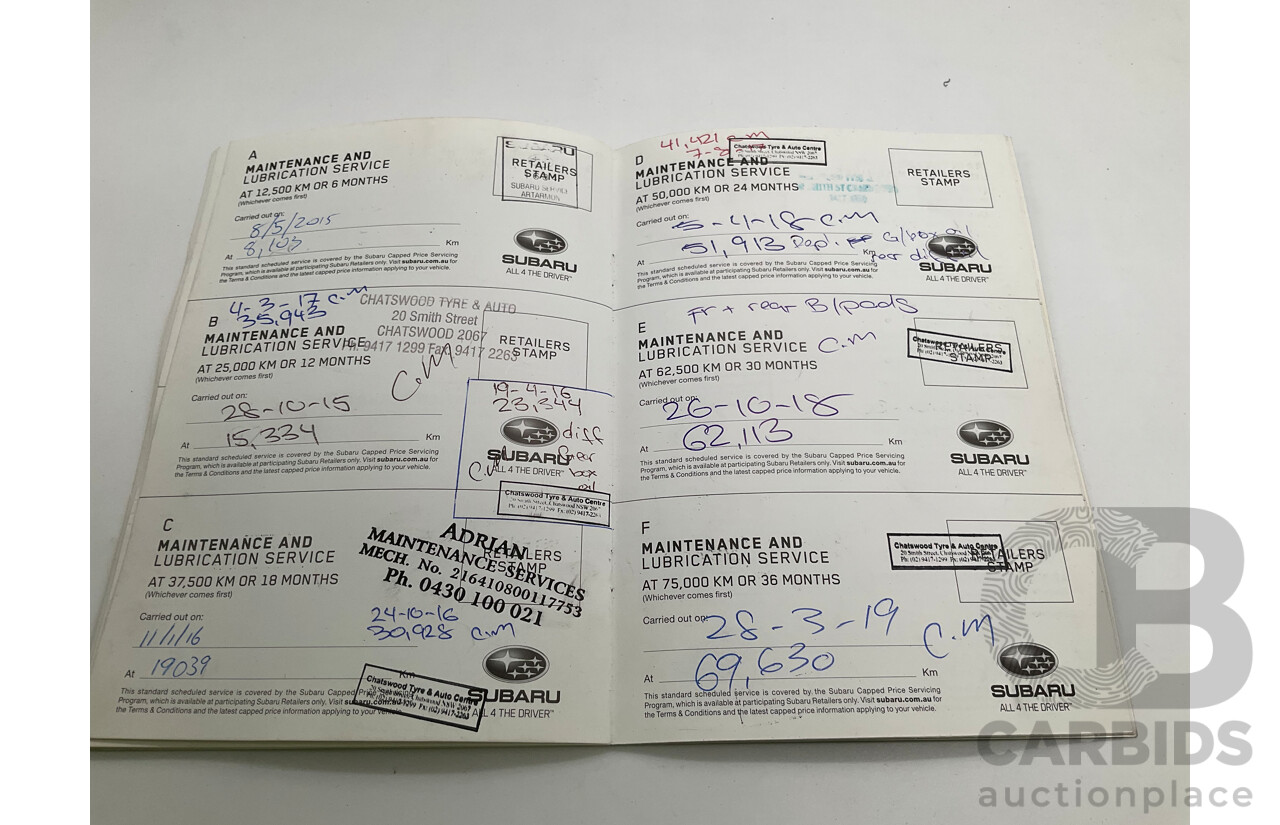 A
MAINTENANCE AND
LUBRICATION SERVICE
AT 12,500 KM OR 6 MONTHS
(Whichever comes first)
Carried out on:
8/5/2015
At 8,103 Km
This standard scheduled service is covered by the Subaru Capped Price Servicing
Program, which is available at participating Subaru Retailers only. Visit subaru.com.au for
the Terms & Conditions and the latest capped price information applying to your vehicle.
SUBARU
RETAILERS
STAMP
SUBARU SERVICE
ARTARMON
SUBARU
ALL 4 THE DRIVER™
4-3-17 C.M
35,943
CHATSWOOD TYRE & AUTO
20 Smith Street
CHATSWOOD 2067
Ph. 9417 1299 Fax 9417 2263
B
MAINTENANCE AND
LUBRICATION SERVICE
AT 25,000 KM OR 12 MONTHS
(Whichever comes first)
C.M
Carried out on:
28-10-15
At 15,334 Km
This standard scheduled service is covered by the Subaru Capped Price Servicing
Program, which is available at participating Subaru Retailers only. Visit subaru.com.au for
the Terms & Conditions and the latest capped price information applying to your vehicle.
RETAILERS
STAMP
19-4-16
23,344
diff
gear
box
oil
SUBARU
ALL 4 THE DRIVER™
Chatswood Tyre & Auto Centre
20 Smith Street, Chatswood NSW 2067
Ph: (02) 9417-1299 Fx: (02) 9417-2263
C
MAINTENANCE AND
LUBRICATION SERVICE
AT 37,500 KM OR 18 MONTHS
(Whichever comes first)
ADRIAN
MAINTENANCE SERVICES
MECH. No. 216410800117753
Ph. 0430 100 021
RETAILERS
STAMP
24-10-16
30,928 C.M
Carried out on:
11/1/16
At 19039 Km
This standard scheduled service is covered by the Subaru Capped Price Servicing
Program, which is available at participating Subaru Retailers only. Visit subaru.com.au for
the Terms & Conditions and the latest capped price information applying to your vehicle.
Chatswood Tyre & Auto Centre
SUBARU
ALL 4 THE DRIVER™
41,421 C.M
Chatswood Tyre & Auto Centre
D
MAINTENANCE AND
LUBRICATION SERVICE
AT 50,000 KM OR 24 MONTHS
(Whichever comes first)
Carried out on:
5-4-18 C.M
At 51,913 Km
G/box oil
This standard scheduled service is covered by the Subaru Capped Price Servicing
Program, which is available at participating Subaru Retailers only. Visit subaru.com.au for
the Terms & Conditions and the latest capped price information applying to your vehicle.
RETAILERS
STAMP
SUBARU
ALL 4 THE DRIVER™
Fr + rear B/pads
E
MAINTENANCE AND
LUBRICATION SERVICE C.M
AT 62,500 KM OR 30 MONTHS
(Whichever comes first)
Carried out on:
26-10-18
At 62,113 Km
This standard scheduled service is covered by the Subaru Capped Price Servicing
Program, which is available at participating Subaru Retailers only. Visit subaru.com.au for
the Terms & Conditions and the latest capped price information applying to your vehicle.
RETAILERS
STAMP
SUBARU
ALL 4 THE DRIVER™
F
MAINTENANCE AND
LUBRICATION SERVICE
AT 75,000 KM OR 36 MONTHS
(Whichever comes first)
Chatswood Tyre & Auto Centre
20 Smith Street, Chatswood NSW 2067
Ph: (02) 9417-1299 Fx: (02) 9417-2263
RETAILERS
STAMP
Carried out on:
28-3-19 C.M
At 69,630 Km
This standard scheduled service is covered by the Subaru Capped Price Servicing
Program, which is available at participating Subaru Retailers only. Visit subaru.com.au for
the Terms & Conditions and the latest capped price information applying to your vehicle.
SUBARU
ALL 4 THE DRIVER™
CB
CARBIDS
auctionplace